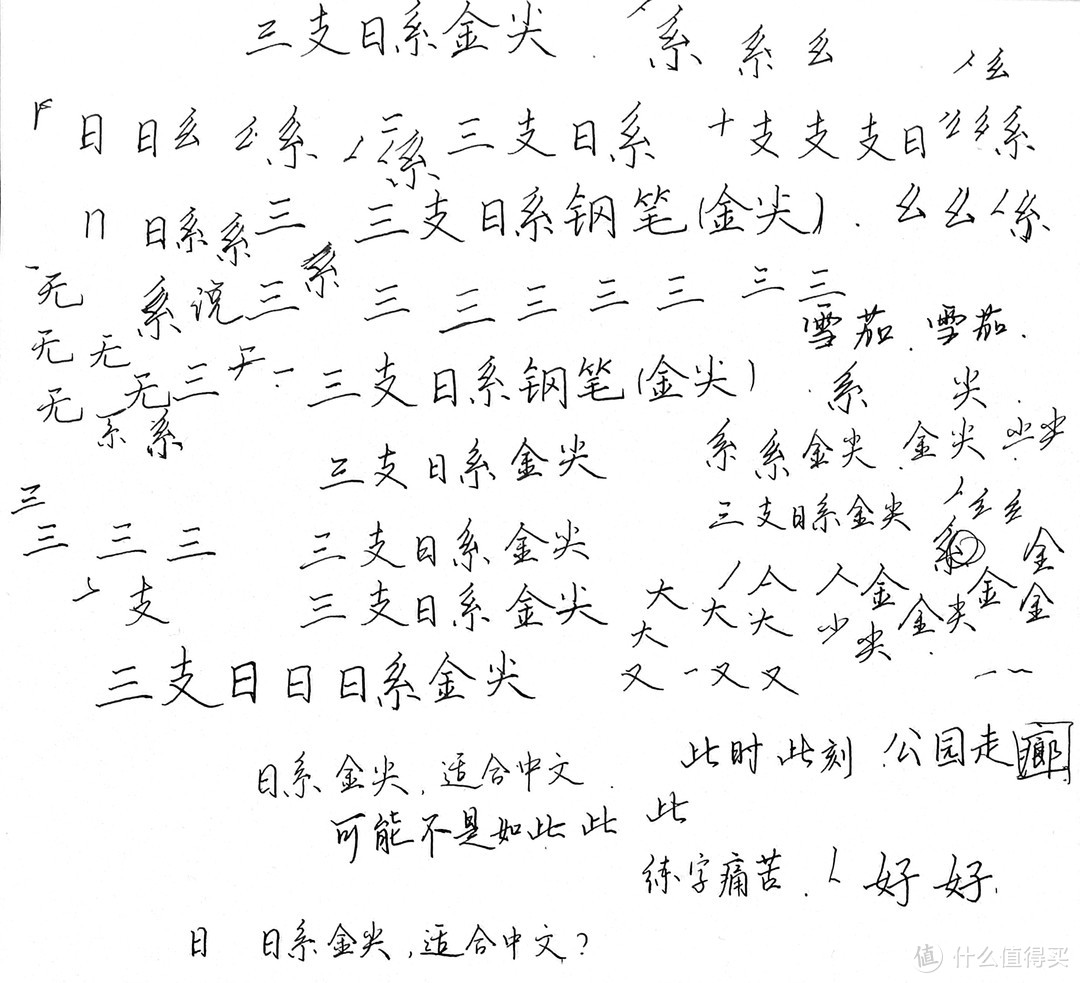 三支日系金尖 . 系 系 幺
日 日 幺 系 系 三支日系 十 支 支 支 日 系
日系系 三 三支日系钢笔(金尖). 幺 幺 系
无 系 说 三 系 三 三 三 三 三 三 三
无 无 雪茄 . 雪茄 .
无 无 三 三支日系钢笔(金尖) . 系 尖 .
系 系 三支日系金尖 系 系 金尖 . 金尖 尖
三 三支日系金尖
三 三 三 三支日系金尖 系 金
支 三支日系金尖 大 大 大 人 人 金 金 金
大 少 尖 金尖
三支日日日系金尖 又 一 又 又 一 一
日系金尖, 适合中文 . 此时此刻 . 公园走廊
可能不是如此 此 此
练字痛苦 . 好 好 .
日 日系金尖, 适合中文?
值 什么值得买